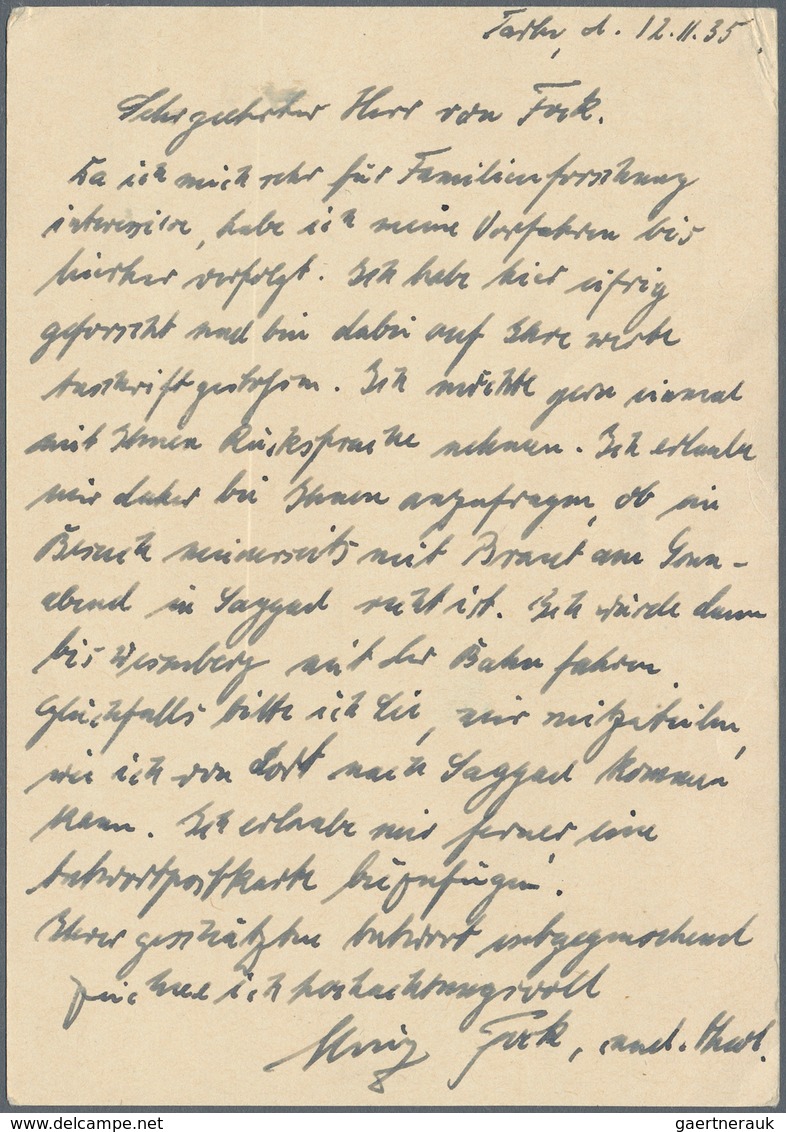 d. 12.II.35.
Sehr geehrter Herr von Fock.
Da ich mich sehr für Familienforschung
interessiere, habe ich meine Vorfahren bis
hierher verfolgt. Ich habe hier eifrig
geforscht und bin dabei auf Ihre werte
Anschrift gestoßen. Ich möchte gern einmal
mit Ihnen Rücksprache nehmen. Ich erlaube
mir daher bei Ihnen anzufragen, ob ein
Besuch meinerseits mit Braut am Sonn-
abend in Saggad recht ist. Ich würde dann
bis Wesenberg mit der Bahn fahren.
Gleichfalls bitte ich Sie, mir mitzuteilen,
wie ich von dort nach Saggad kommen
kann. Ich erlaube mir ferner eine
Antwortpostkarte beizufügen.
Ihrer geschätzten Antwort entgegensehend
zeichne ich hochachtungsvoll
Fock, cand.
delcampe.net
gaertnerauk